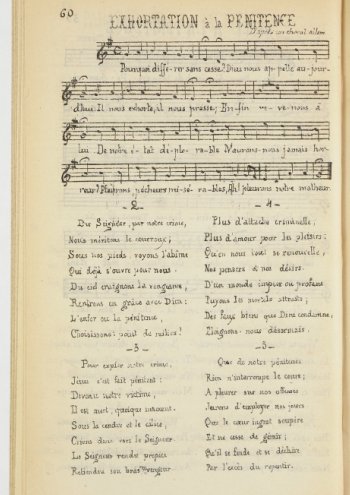 60
EXHORTATION à la PENITENCE
D'après un choral allem
Pourquoi différer sans cesse? Dieu nous appelle aujour-
d'hui: Il nous exhorte, il nous presse; Enfin revenons à
lui. De notre état déplorable N'aurons-nous jamais hor-
reur? Pleurons pécheurs misérables, Ah! pleurons notre malheur.
- 2 -
Du Seigneur, par notre crime,
Nous méritons le courroux;
Sous nos pieds voyons l'abîme
Qui déjà s'ouvre pour nous.
Du ciel craignons la vengeance,
Rentrons en grâce avec Dieu:
L'enfer ou la pénitence,
Choisissons: point de milieu!
- 3 -
Pour expier notre crime,
Jésus s'est fait pénitent:
Devenu notre victime,
Il est mort, quoique innocent.
Sous la cendre et le cilice,
Crions donc vers le Seigneur
Le Seigneur rendu propice
Retiendra son bras vengeur
- 4 -
Plus d'attache criminelle,
Plus d'amour pour les plaisirs;
Qu'en nous tout se renouvelle,
Nos pensers et nos désirs.
D'un monde impur ou profane
Fuyons les mortels attraits;
Des faux biens que Dieu condamne,
Eloignons-nous désormais.
- 5 -
Que de notre pénitence
Rien n'interrompe le cours;
A pleurer sur nos offenses
Jurons d'employer nos jours
Que le cœur ingrat soupire
Et ne cesse de gémir;
Qu'il se fende et se déchire
Par l'excès du repentir.